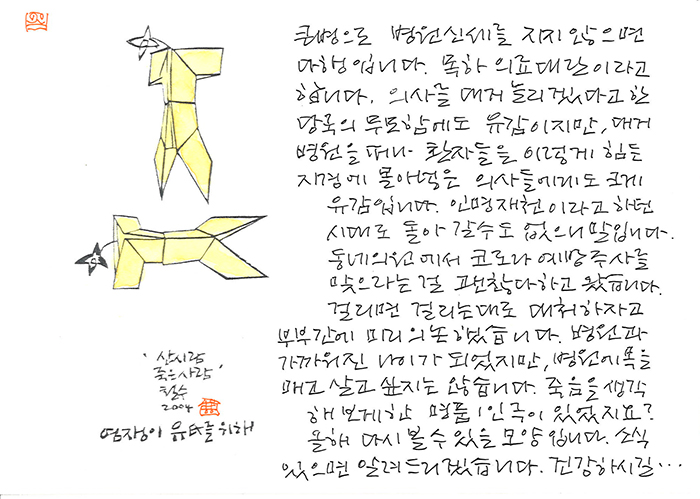 큰병으로 병원신세를 지지 않으면
다행입니다. 목하 의료대란이라고
합니다. 의사를 대거 늘리겠다고 한
당국의 무모함에도 유감이지만, 대거
병원을 떠나 환자들을 이렇게 힘든
지경에 몰아넣은 의사들에게도 크게
유감입니다. 인명재천이라고 하던
시대로 돌아 갈수도 없으니 말입니다.
동네의원에서 코로나 예방주사를
맞으라는 걸 괜찮다하고 왔습니다.
걸리면 걸리는대로 대처하자고
부부간에 미리 의논했습니다. 병원과
가까워진 나이가 되었지만, 병원에 목을
매고 살고 싶지는 않습니다. 죽음을 생각
해 보게한 명품 1인극이 있었지요?
올해 다시 볼 수 있을 모양입니다. 소식
있으면 알려드리겠습니다. 건강하시길…
'산사람
죽은사람'
철수
2004
염쟁이 유氏를 위해